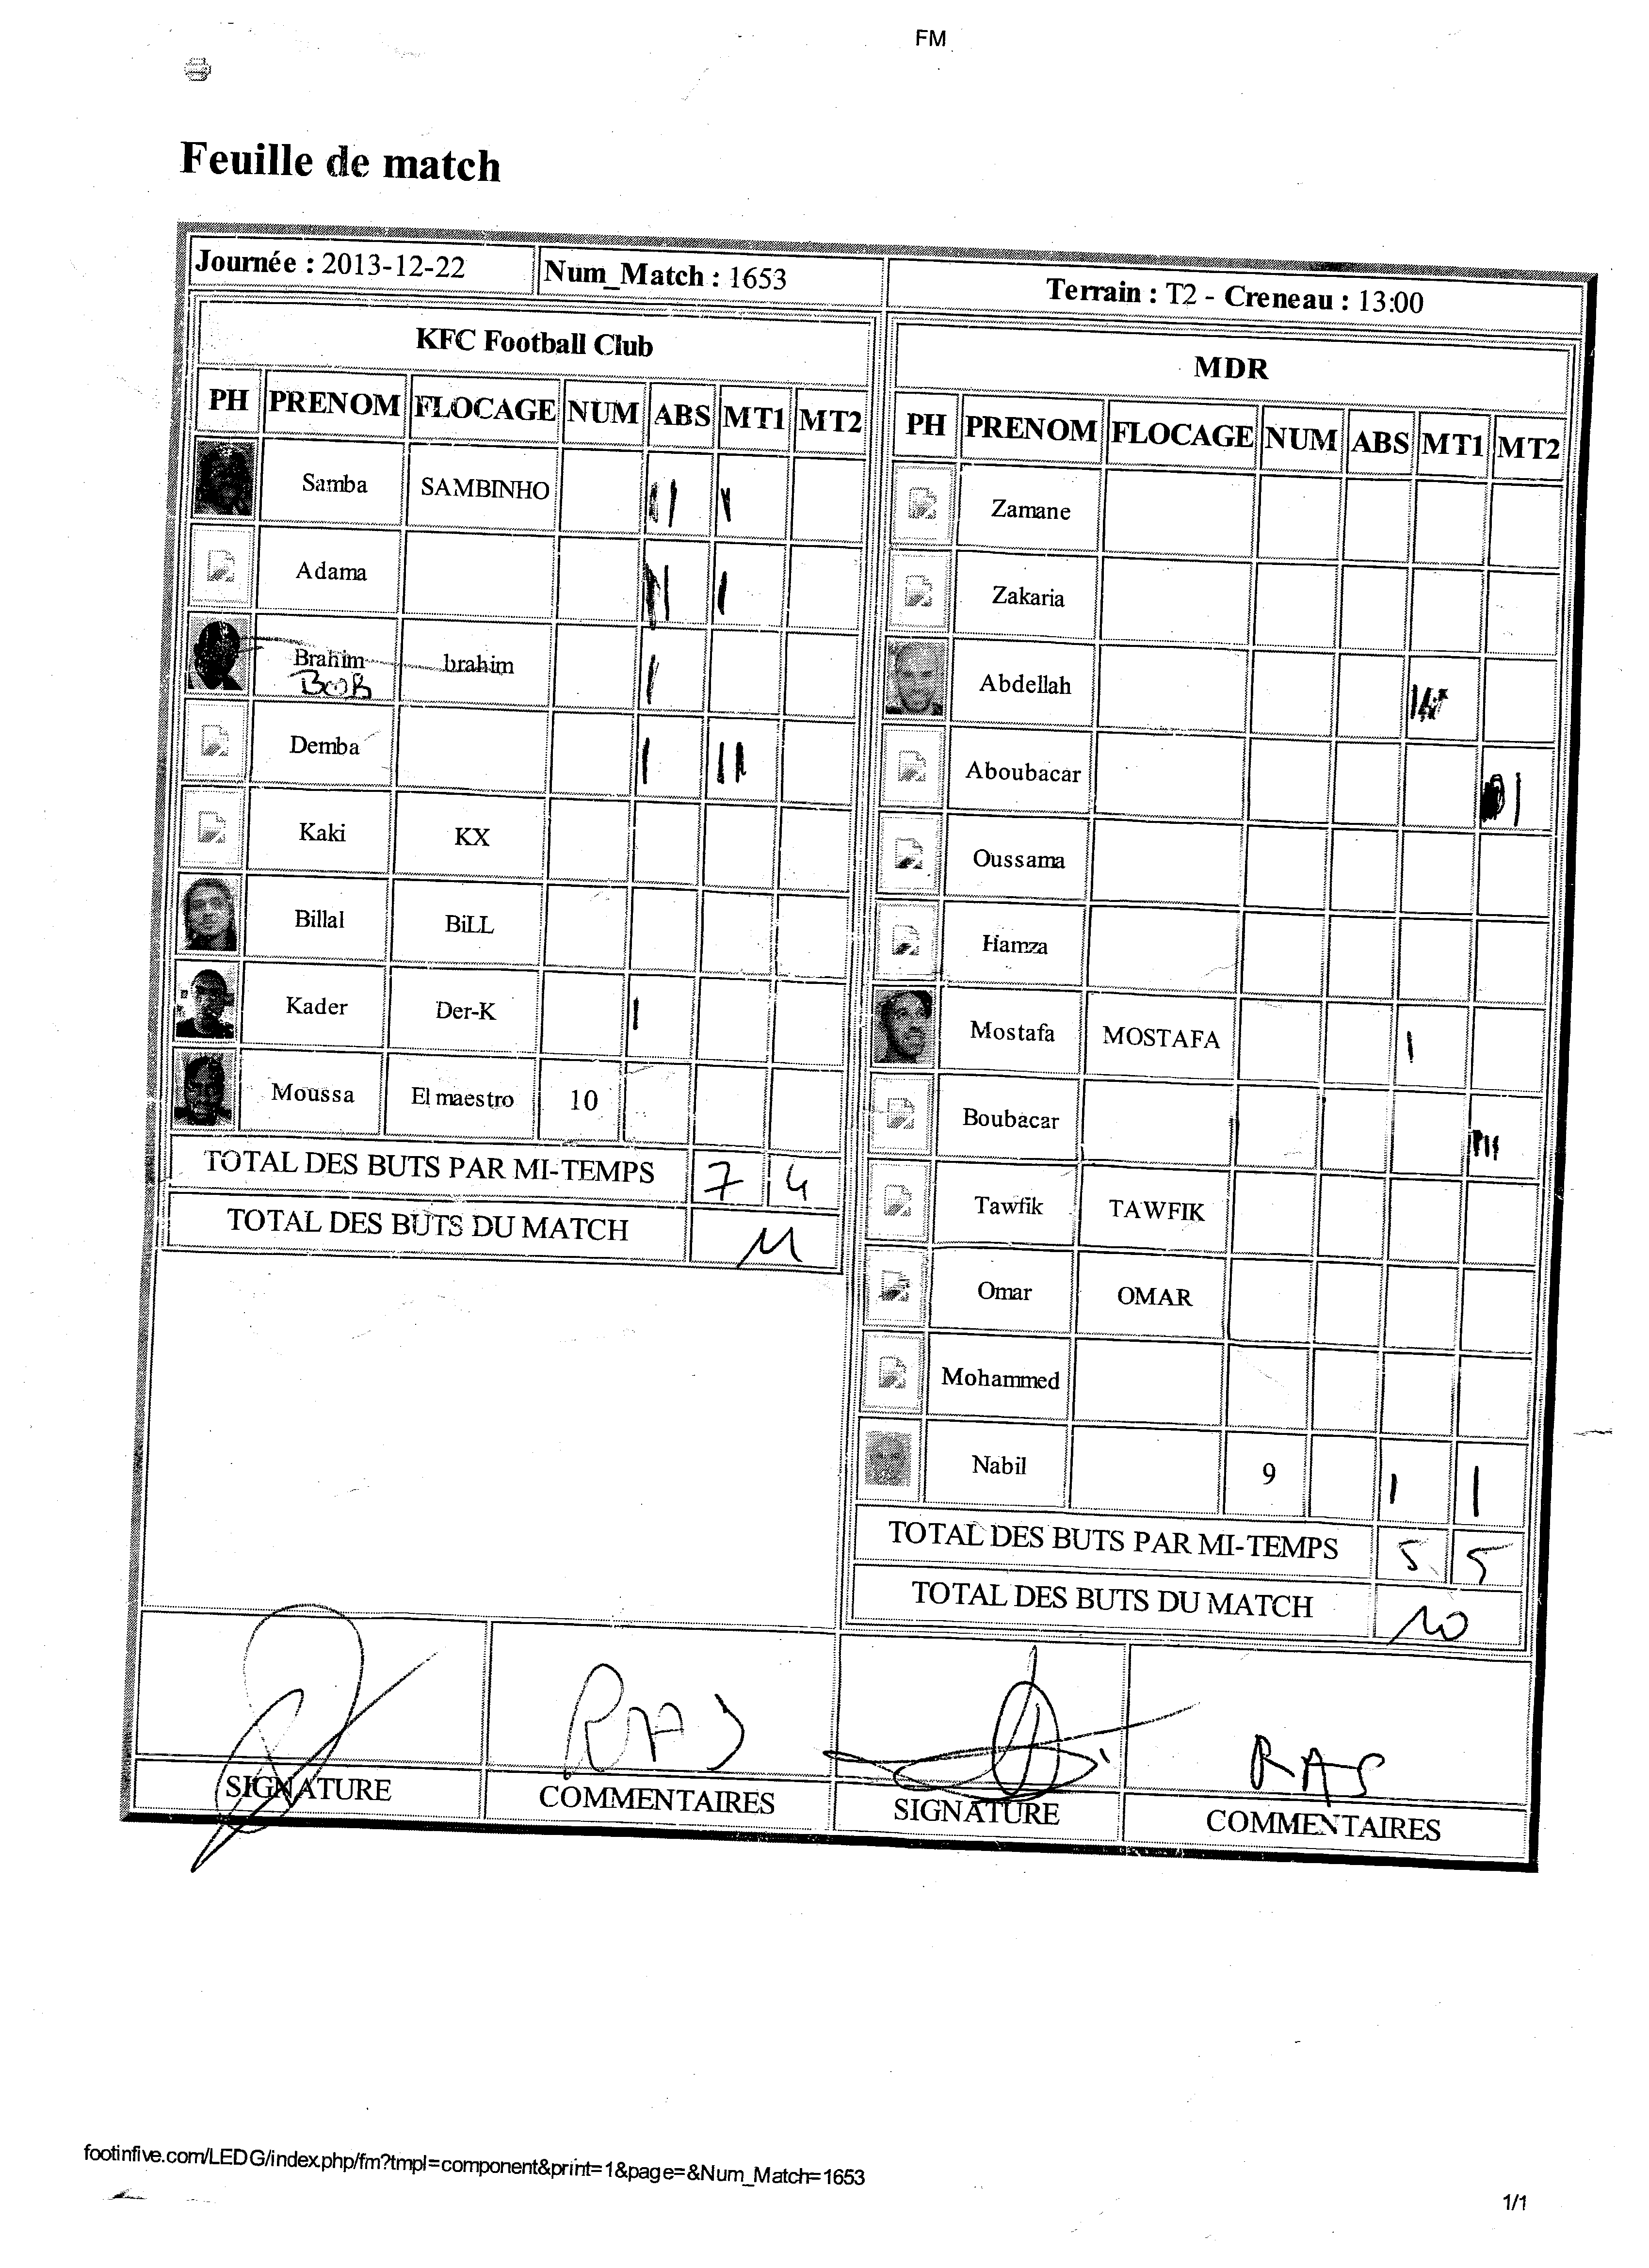 FM
Feuille de match
Journée : 2013-12-22 Num_Match : 1653 Terrain : T2 - Creneau : 13:00
KFC Football Club
PH PRENOM FLOCAGE NUM ABS MT1 MT2
Samba SAMBINHO
Adama
Brahim brahim
BOB
Demba
Kaki KX
Billal BiLL
Kader Der-K
Moussa El maestro 10
TOTAL DES BUTS PAR MI-TEMPS 7 4
TOTAL DES BUTS DU MATCH 11
MDR
PH PRENOM FLOCAGE NUM ABS MT1 MT2
Zamane
Zakaria
Abdellah
Aboubacar
Oussama
Hamza
Mostafa MOSTAFA
Boubacar
Tawfik TAWFIK
Omar OMAR
Mohammed
Nabil 9
TOTAL DES BUTS PAR MI-TEMPS 5 5
TOTAL DES BUTS DU MATCH 10
RAS
RAS
SIGNATURE COMMENTAIRES SIGNATURE COMMENTAIRES
footinfive.com/LEDG/index.php/fm?tmpl=component&print=1&page=&Num_Match=1653
1/1